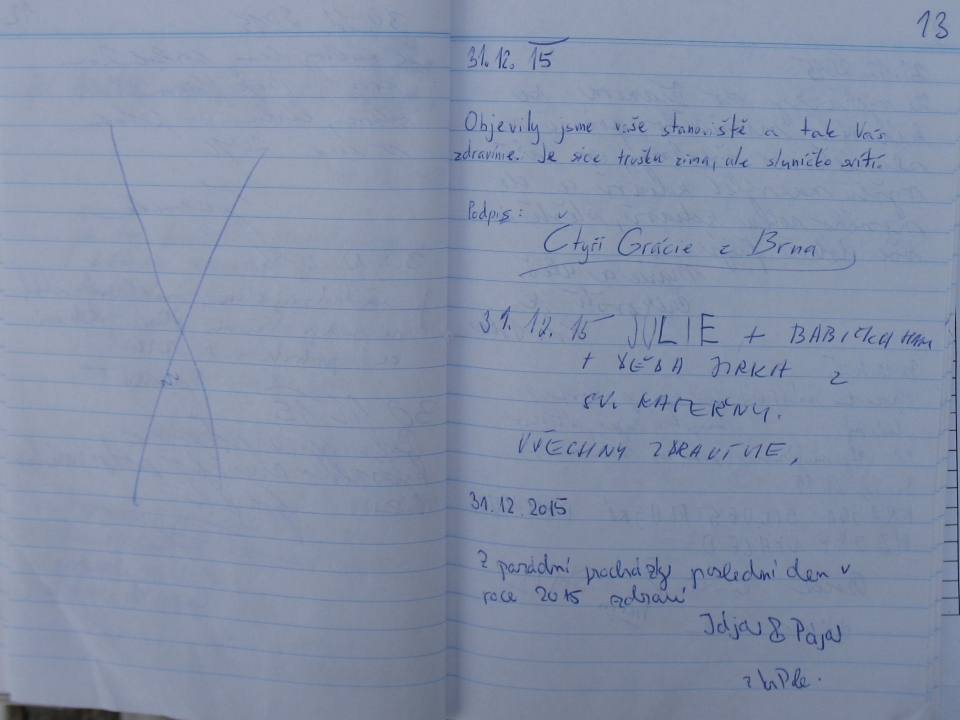 13
31.12.15
Objevily jsme vaše stanoviště a tak Vás
zdravíme. Je sice trošku zima, ale sluníčko svítí.
Podpis:
Čtyři Grácie z Brna
31.12.15 JULIE + BABIČKA
+ DĚDA JIRKA z
SV. KATEŘINY.
VŠECHNY ZDRAVÍME,
31.12.2015
Z parádní procházky poslední den v
roce 2015 zdraví
&